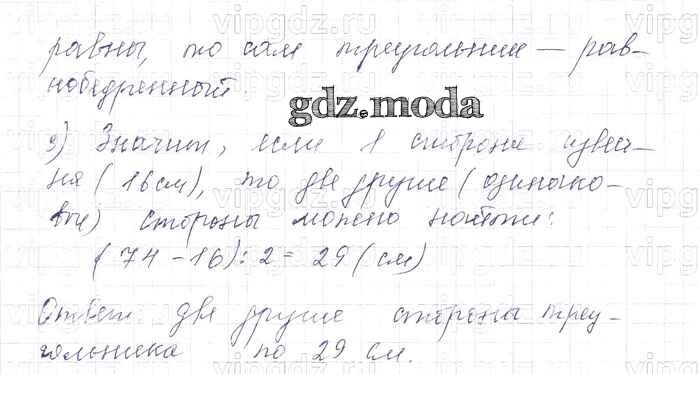 равны, то сам треугольник — рав-
нобедренный.
gdz.moda
3) Значит, если 1 сторона извест-
на (16 см), то две другие (одинако-
вые) стороны можно найти:
(74 - 16) : 2 = 29 (см)
Ответ две другие стороны треу-
гольника по 29 см.